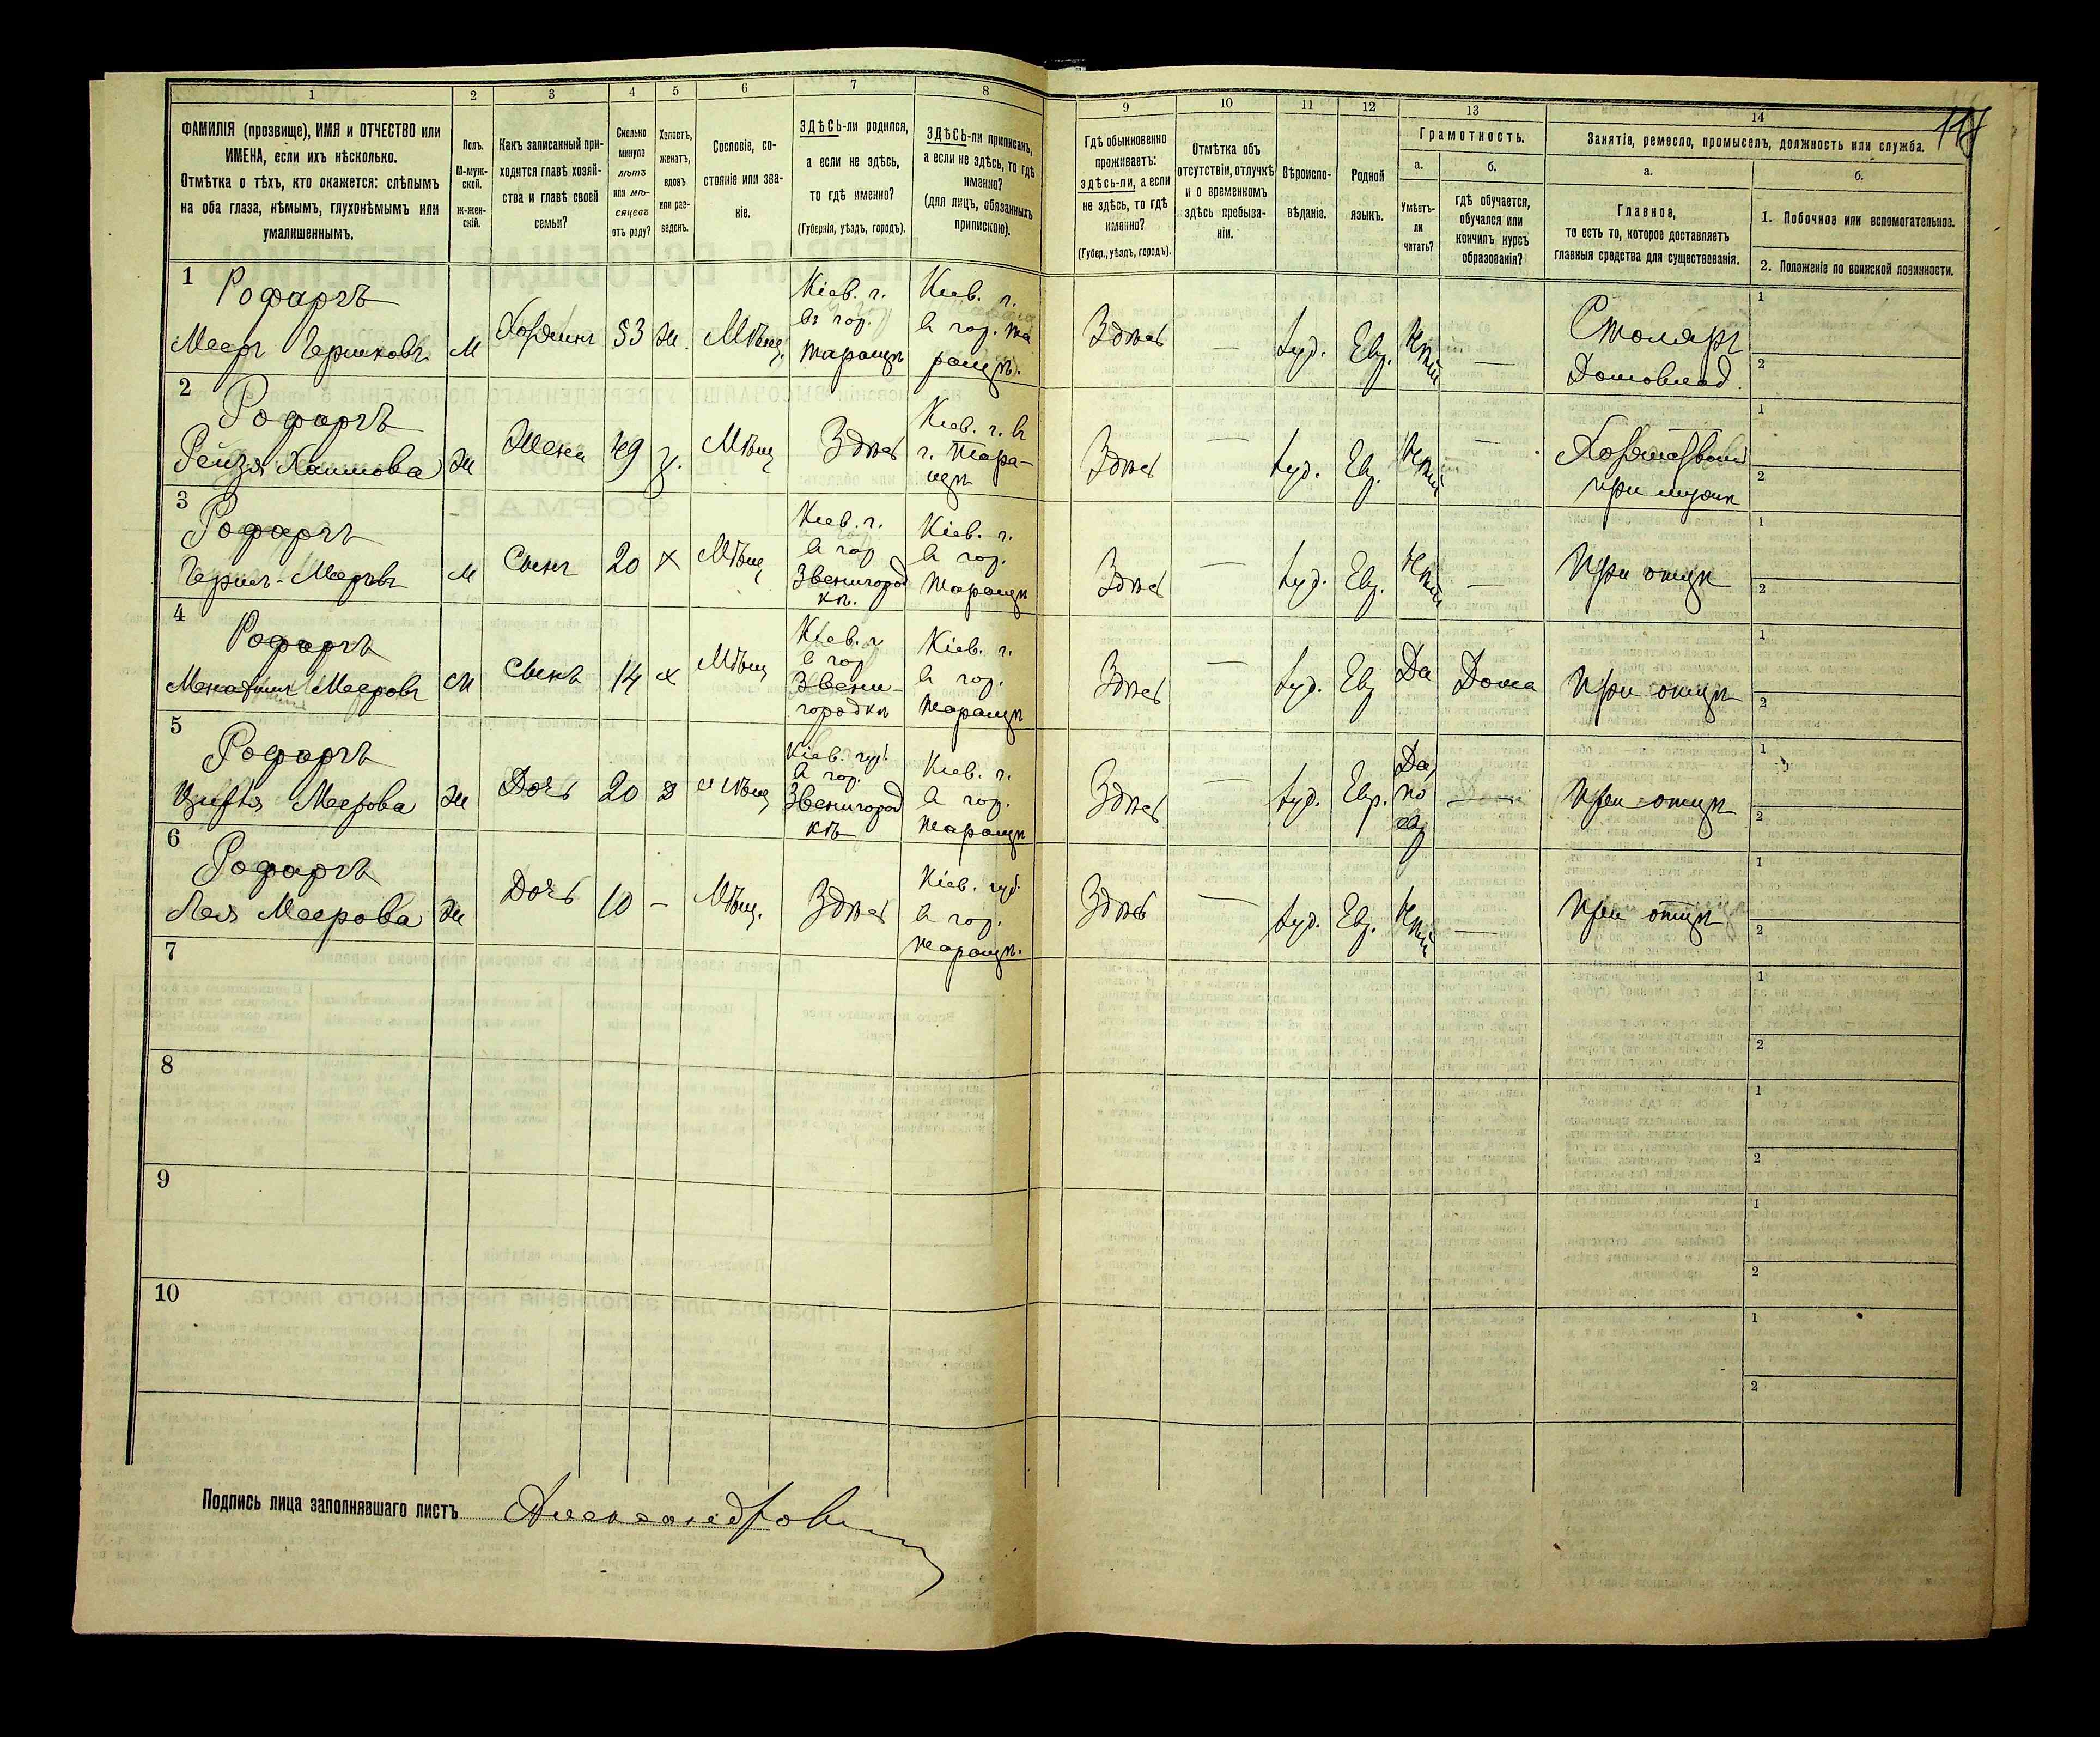 117
1
2
3
4
5
6
7
8
9
10
11
12
13
14
ФАМИЛІЯ (прозвище), ИМЯ и ОТЧЕСТВО или
ИМЕНА, если ихъ нѣсколько.
Отмѣтка о тѣхъ, кто окажется: слѣпымъ
на оба глаза, нѣмымъ, глухонѣмымъ или
умалишеннымъ.
Полъ.
М-муж-
ской.
ж-жен-
скій.
Какъ записанный при-
ходится главѣ хозяй-
ства и главѣ своей
семьи?
Сколько
минуло
лѣтъ
или мѣ-
сяцевъ
отъ роду?
Холостъ,
женатъ,
вдовъ
или раз-
веденъ.
Сословіе, со-
стояніе или зва-
ніе.
ЗДѢСЬ-ли родился,
а если не здѣсь,
то гдѣ именно?
(Губернія, уѣздъ, городъ).
ЗДѢСЬ-ли приписанъ,
а если не здѣсь, то гдѣ
именно?
(для лицъ, обязанныхъ
припискою).
Гдѣ обыкновенно
проживаетъ:
здѣсь-ли, а если
не здѣсь, то гдѣ
именно?
(Губер., уѣздъ, городъ).
Отмѣтка объ
отсутствіи, отлучкѣ
и о временномъ
здѣсь пребыва-
ніи.
Вѣроиспо-
вѣданіе.
Родной
языкъ.
Грамотность.
а.
Умѣетъ-
ли
читать?
б.
гдѣ обучается,
обучался или
кончилъ курсъ
образованія?
Занятіе, ремесло, промыселъ, должность или служба.
а.
Главное,
то есть то, которое доставляетъ
главныя средства для существованія.
б.
1. Побочное или вспомогательное.
2. Положеніе по воинской повинности.
1
Рофаргъ
Мееръ Гершковъ
М
Хозяинъ
53
ж.
Мѣщ.
Кіев. г.
въ гор.
Таращѣ
Кіев. г.
в гор. Та
ращѣ.
Здѣсь
—
Іуд.
Евр.
Нѣтъ
—
Столяръ
Домовлад.
1
2
2
Рофаргъ
Рейзя Хаимова
Ж
Жена
49
з.
Мѣщ
Здѣсь
Кіев. г. в
г. Тара-
щѣ
Здѣсь
—
Іуд.
Евр.
Нѣтъ
—
при мужѣ
1
2
3
Рофаргъ
Гершъ-Мееровъ
М
Сынъ
20
х
Мѣщ
Кіев. г.
в гор
Звенигород
кѣ.
Кіев. г.
в гор.
Таращѣ
Здѣсь
—
Іуд.
Евр.
Нѣтъ
—
При отцѣ
1
2
4
Рофаргъ
Мееровъ
М
Сынъ
14
х
Мѣщ
Кіев. г
в гор
Звени-
городкѣ
Кіев. г.
в гор.
Таращѣ
Здѣсь
—
Іуд.
Евр
Да
Дома
При отцѣ
1
2
5
Рофаргъ
Меерова
Ж
Дочь
20
д
Мѣщ
Кіев. губ.
в гор.
Звенигород
кѣ
Кіев. г.
в гор.
Таращѣ
Здѣсь
—
Іуд.
Евр.
Да,
по
евр
—
При отцѣ
1
2
6
Рофаргъ
Лея Меерова
Ж
Дочь
10
—
Мѣщ.
Здѣсь
Кіев. губ.
в гор.
Таращѣ.
Здѣсь
—
Іуд.
Евр.
Нѣтъ
—
При отцѣ
1
2
7
1
2
8
1
2
9
1
2
10
1
2
Подпись лица заполнявшаго листъ